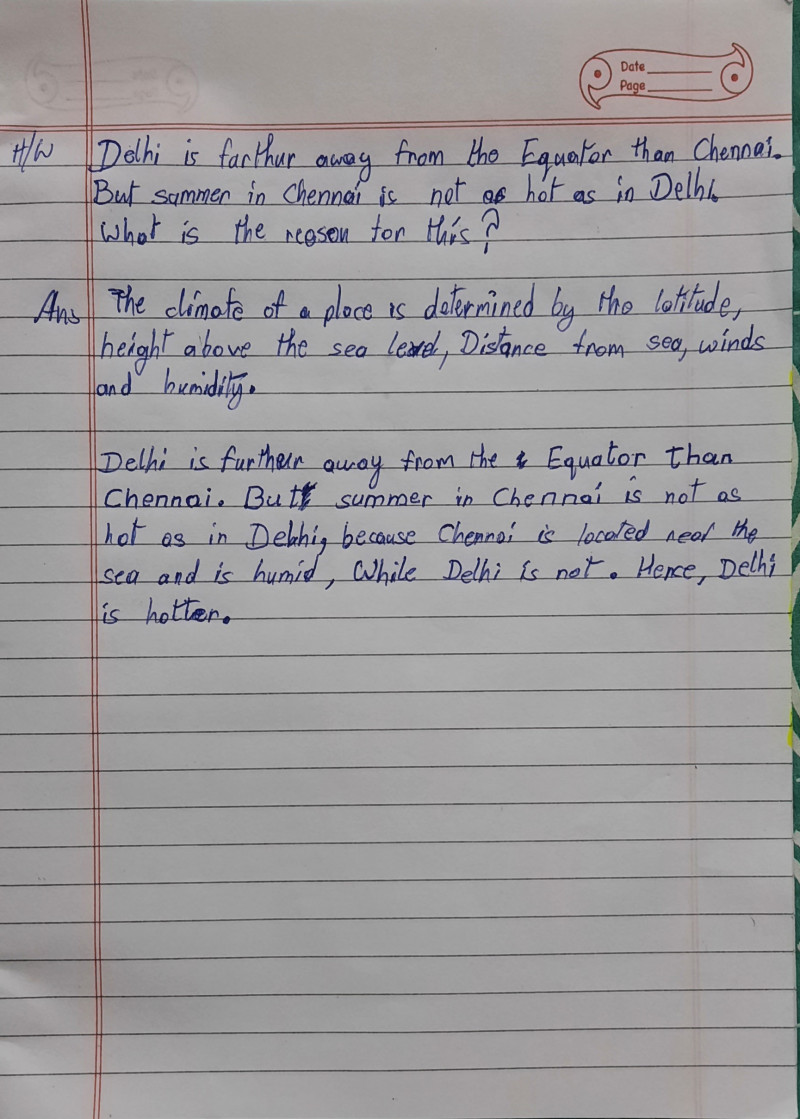 Date
Page
H/W Delhi is farthur away from the Equator than Chennai.
But summer in Chennai is not as hot as in Delhi.
What is the reason for this?
Ans The climate of a place is determined by the latitude,
height above the sea level, Distance from sea, winds
and humidity.
Delhi is further away from the Equator than
Chennai. But summer in Chennai is not as
hot as in Delhi, because Chennai is located near the
sea and is humid, While Delhi is not. Hence, Delhi
is hotter.